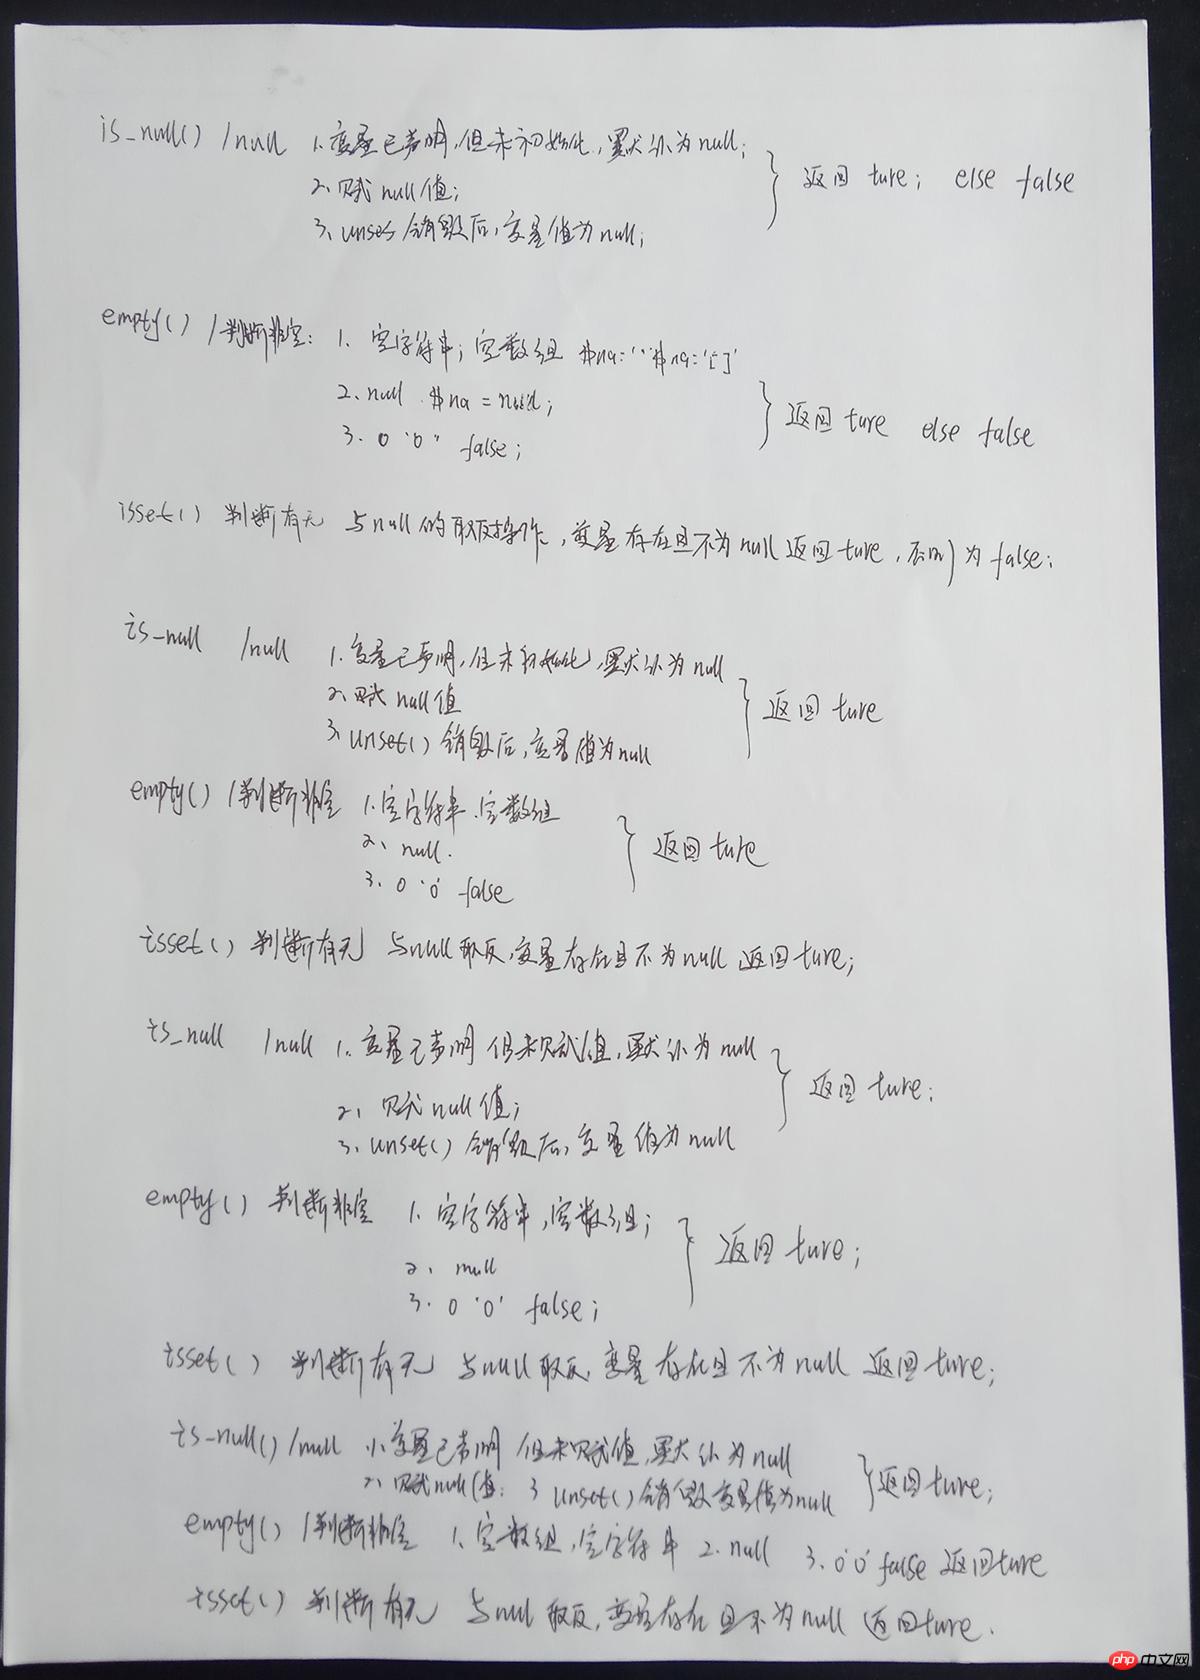 is_null() /null 1、变量已声明,但未初始化,默认为null;
2、赋null值;
3、unset销毁后,变量值为null;
返回 ture; else false
empty() /判断非空: 1、空字符串; 空数组 $na='' $na='[]'
2、null $na = null;
3、0 '0' false;
返回 ture else false
isset() 判断有无 与null的取反操作,变量存在且不为null返回ture,否则为false;
is_null /null 1、变量已声明,但未初始化,默认为null
2、赋null值
3、unset()销毁后,变量值为null
返回 ture
empty() /判断非空 1、空字符串、空数组
2、null.
3、0 '0' false
返回 ture
isset() 判断有无 与null取反,变量存在且不为null返回ture;
is_null /null 1、变量已声明 但未赋值,默认为null
2、赋null值;
3、unset()销毁后,变量值为null
返回 ture;
empty() 判断非空 1、空字符串,空数组;
2、null
3、0 '0' false;
返回 ture;
isset() 判断有无 与null取反,变量存在且不为null 返回ture;
is_null() /null 1、变量已声明 但未赋值,默认为null
2、赋null值; 3 unset()销毁变量值为null
返回ture;
empty() /判断非空 1、空数组,空字符串 2、null 3、0'0' false 返回ture
isset() 判断有无 与nul取反,变量存在且不为null 返回ture.
php中文网